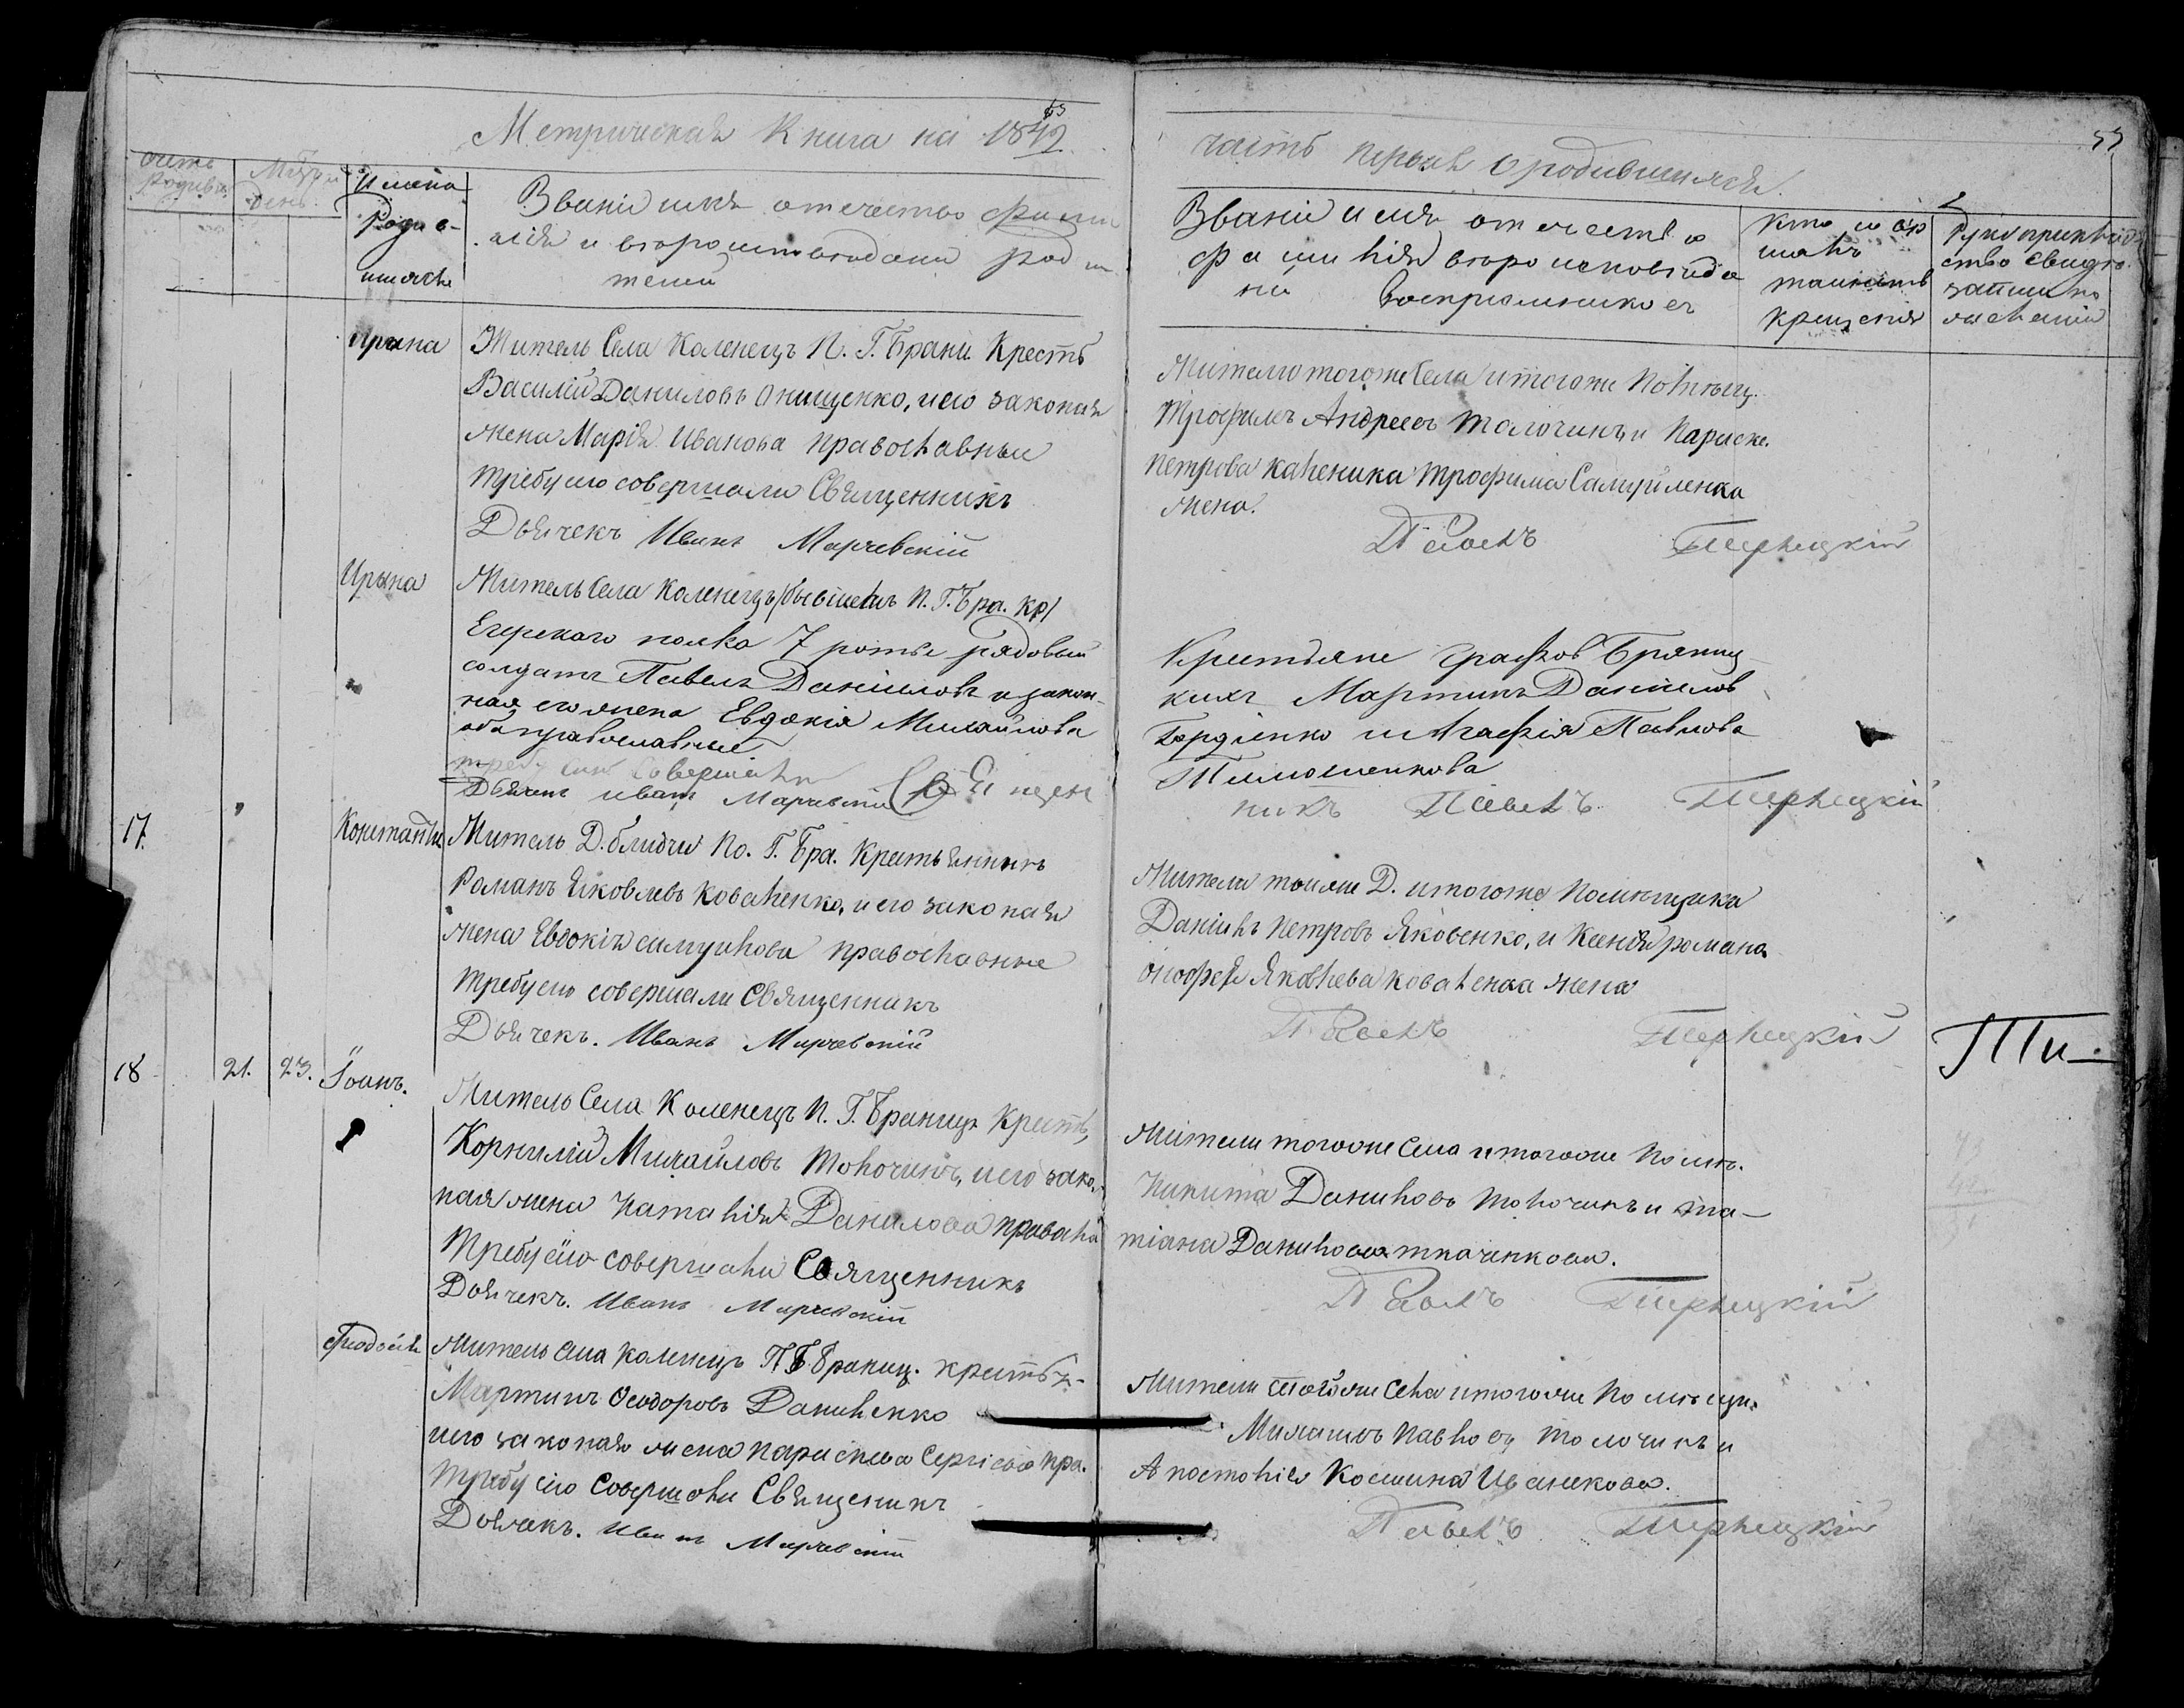 65
Метрическая Книга на 1842
53
часть первая о родившихся.
Имена
Роди в-
шихся
Званіе имя отечество фами
лія и вероисповедани род и
телей
Званіе имя отечество
фамилія вероисповида
ніе Восприемникоез
Кто совер
шалъ
таинств
крещенія
Рукоприклад
ство свидѣ.
записи по
желанию
Ирына
Житель Села Каленецъ П. Г. Брани. Крестъ
Василій Даниловъ Онищенко, и его законая
жена Марія Иванова православныи
Требу сию совершали Священникъ
Дьячекъ Иванъ Марчевскій
Жители тогоже Села и тогоже Помѣщ.
Трофимъ Андреевъ Толочинъ и Параске.
Петрова каленика Трофима Самуйленка
жена.
Павелъ Терлецкій
Ирына
Житель Села Каленецъ /бывшеиъ П. Г. Бра. кр/
Егерскаго полка 7 роты рядовый
солдатъ Павелъ Даниіловъ и закон-
ная его жена Евдокія Михайлова
оба православные
требу сию совершали Священ
Дьячекъ Иванъ Марчевскій
Крестьяне Графов Браниц
кихъ Мартинъ Даниілов
Гордіенко и Агафія Павлова
Тимошенкова
никъ Павелъ Терлецкій
17.
Константи
Житель Д. блидчи По. Г. Бра. Крестьянинъ
Романъ Яковлевъ Коваленко, и его законая
жена Евдокія самуилова православные
Требу сию совершали Священникъ
Дьячекъ. Иванъ Марчевскій
Жители тоиже Д. и тогоже Помѣщика
Даніилъ Петровъ Яковенко, и Ксенія романа
онофрея Яковлева коваленка жена
Павелъ Терлецкій
Ти-
18
21. 23.
Іоинъ.
Житель Села Каленецъ П. Г. Браниц. Крестъ,
Корнилій Михайловъ Толочинъ, и его зако.
ная жена Наталія Данилова правосла
Требу сію совершали Священникъ
Дьячекъ. Иванъ Марчевскій
Жители тогоже Села и тогоже Помѣ.
Никита Даниловъ Толочинъ и та-
тіана Данилова ткаченкова.
Павелъ Терлецкій
Феодосія
Житель Села Каленецъ П Г Браниц. крестья-
Мартинъ Феодоровъ Даниленко
и его законая жена параскева Сергіева пра.
Требу сію Совершали Священикъ
Дьячекъ. Иванъ Марчевскій
Жители тогоже Села и тогоже Помѣщи.
Михаилъ Павловъ Толочинъ и
Апостолія Космина Ивашкова.
Павелъ Терлецкій